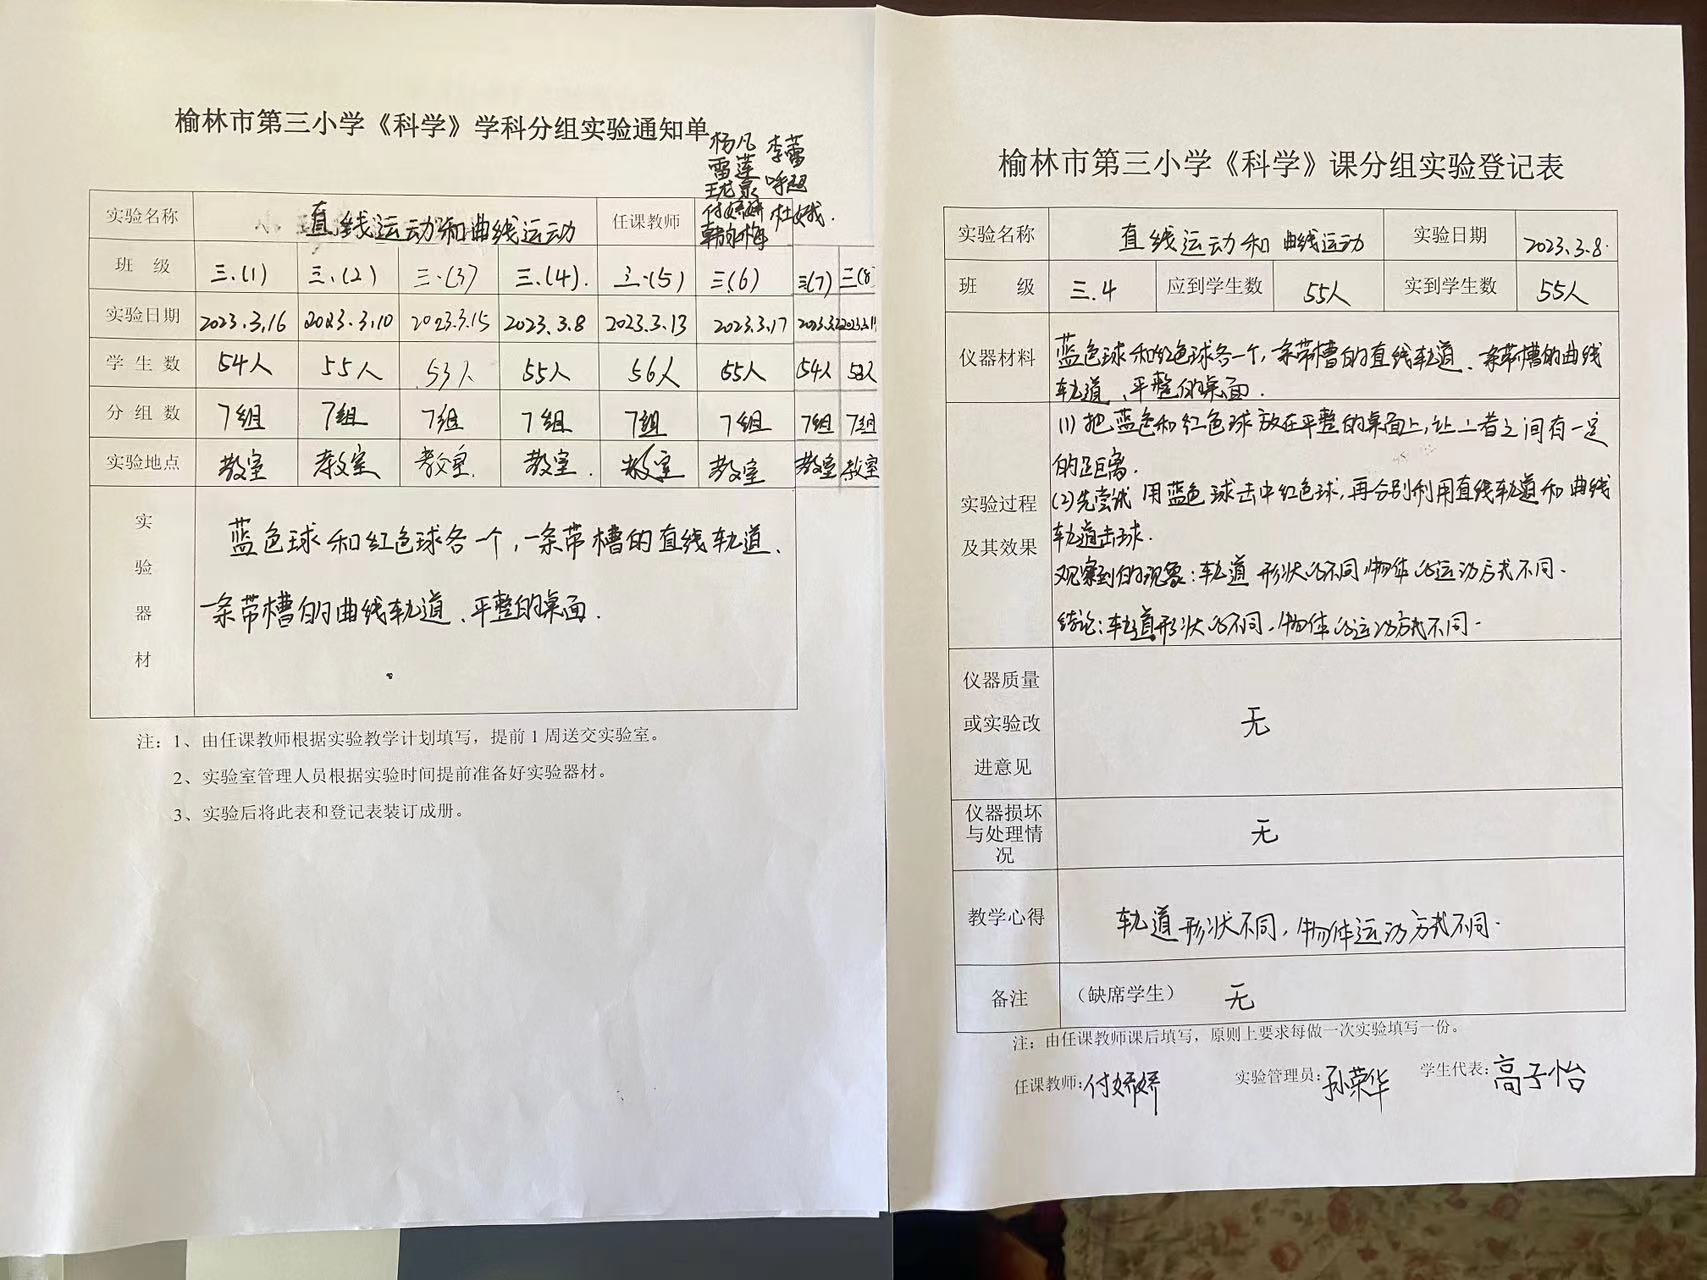 榆林市第三小学《科学》学科分组实验通知单
杨凡 李蕾
雷莲 呼程
付娇娇 杜娥.
实验名称 直线运动和曲线运动 任课教师
班 级 三.(1) 三.(2) 三.(3) 三.(4). 三.(5) 三(6) 三(7) 三(8)
实验日期 2023.3.16 2023.3.10 2023.3.15 2023.3.8 2023.3.13 2023.3.17
学 生 数 54人 55人 53人 55人 56人 55人 54人 53人
分 组 数 7组 7组 7组 7组 7组 7组 7组 7组
实验地点 教室 教室 教室. 教室. 教室 教室 教室 教室
实验器材
蓝色球和红色球各一个,一条带槽的直线轨道、
一条带槽的曲线轨道、平整的桌面.
注:1、由任课教师根据实验教学计划填写,提前1周送交实验室。
2、实验室管理人员根据实验时间提前准备好实验器材。
3、实验后将此表和登记表装订成册。
榆林市第三小学《科学》课分组实验登记表
实验名称 直线运动和曲线运动 实验日期 2023.3.8.
班 级 三.4 应到学生数 55人 实到学生数 55人
仪器材料 蓝色球和红色球各一个,一条带槽的直线轨道、一条带槽的曲线
轨道、平整的桌面.
实验过程
及其效果
(1)把蓝色和红色球放在平整的桌面上,让二者之间有一定
的距离.
(2)先尝试用蓝色球击中红色球,再分别利用直线轨道和曲线
轨道击球.
观察到的现象:轨道形状的不同物体的运动方式不同.
结论:轨道形状的不同,物体的运动方式不同.
仪器质量
或实验改
进意见
无
仪器损坏
与处理情
况
无
教学心得 轨道形状不同,物体运动方式不同.
备注 (缺席学生) 无
注:由任课教师课后填写,原则上要求每做一次实验填写一份。
任课教师:付娇娇 实验管理员:孙荣华 学生代表:高子怡